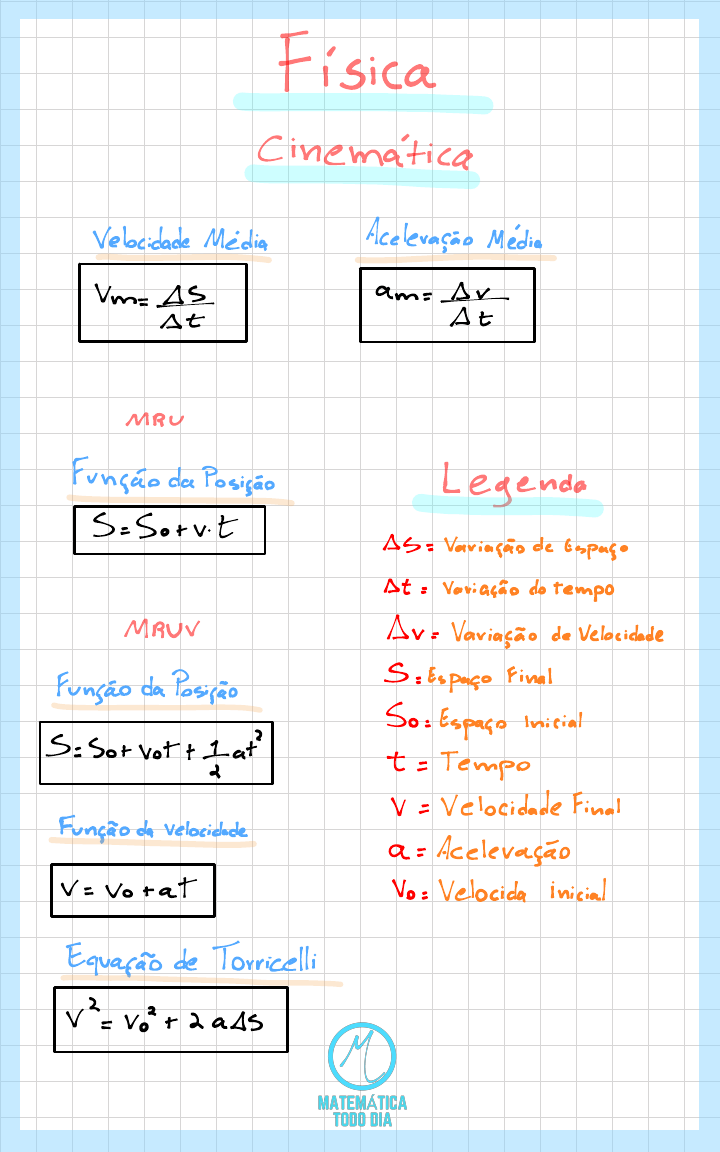 Física
Cinemática
Velocidade Média
Vm = ΔS/Δt
Aceleração Média
am = Δv/Δt
MRU
Função da Posição
S = So + v·t
MRUV
Função da Posição
S = So + Vot + 1/2 at²
Função da Velocidade
V = Vo + at
Equação de Torricelli
V² = Vo² + 2 a ΔS
Legenda
ΔS = Variação de Espaço
Δt = Variação do tempo
Δv = Variação de Velocidade
S = Espaço Final
So = Espaço Inicial
t = Tempo
V = Velocidade Final
a = Aceleração
Vo = Velocida inicial
M
MATEMÁTICA
TODO DIA